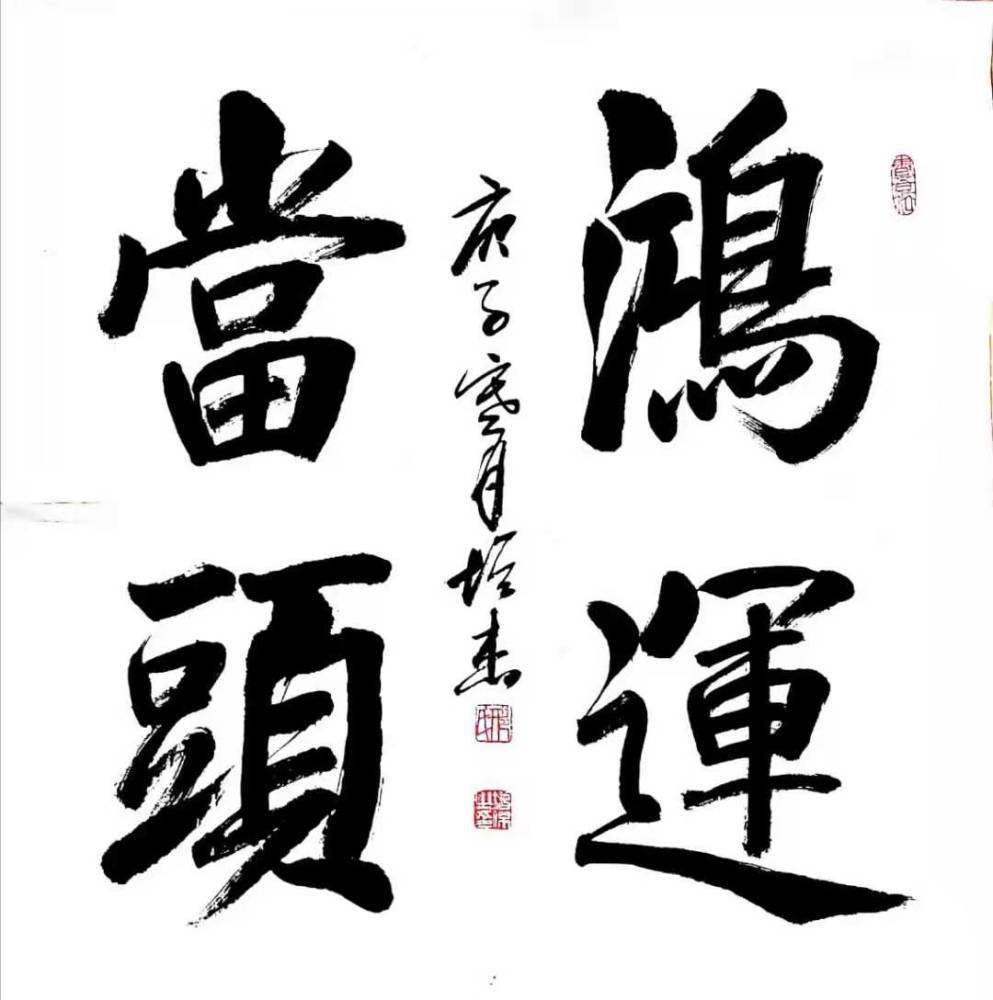 鴻運
當頭
庚子寒月培杰